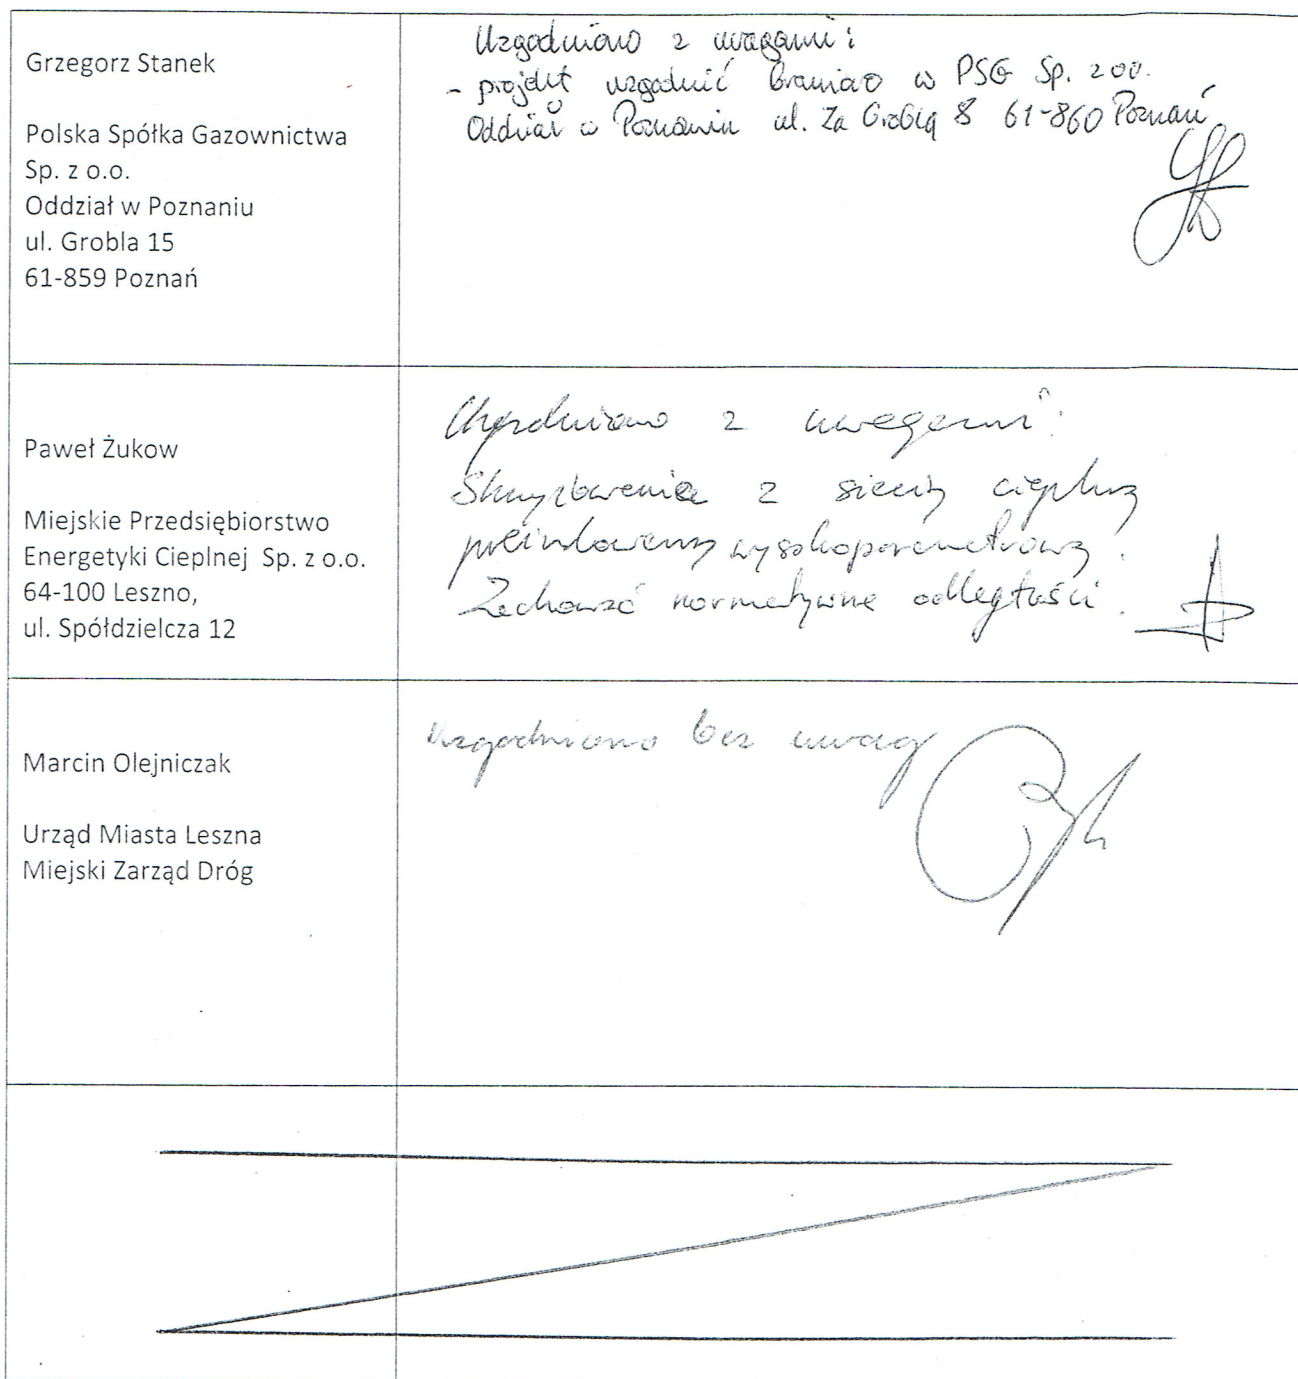 Grzegorz Stanek
Polska Spółka Gazownictwa
Sp. z o.o.
Oddział w Poznaniu
ul. Grobla 15
61-859 Poznań
Uzgodniono z uwagami:
- projekt uzgodnić branżowo w PSG Sp. z o.o.
Oddział w Poznaniu ul. Za Groblą 8 61-860 Poznań
Paweł Żukow
Miejskie Przedsiębiorstwo
Energetyki Cieplnej Sp. z o.o.
64-100 Leszno,
ul. Spółdzielcza 12
Uzgodniono z uwagami:
Skrzyżowanie z siecią cieplną
preizolowaną wysokoparametrową.
Zachować normatywne odległości.
Marcin Olejniczak
Urząd Miasta Leszna
Miejski Zarząd Dróg
uzgodniono bez uwag